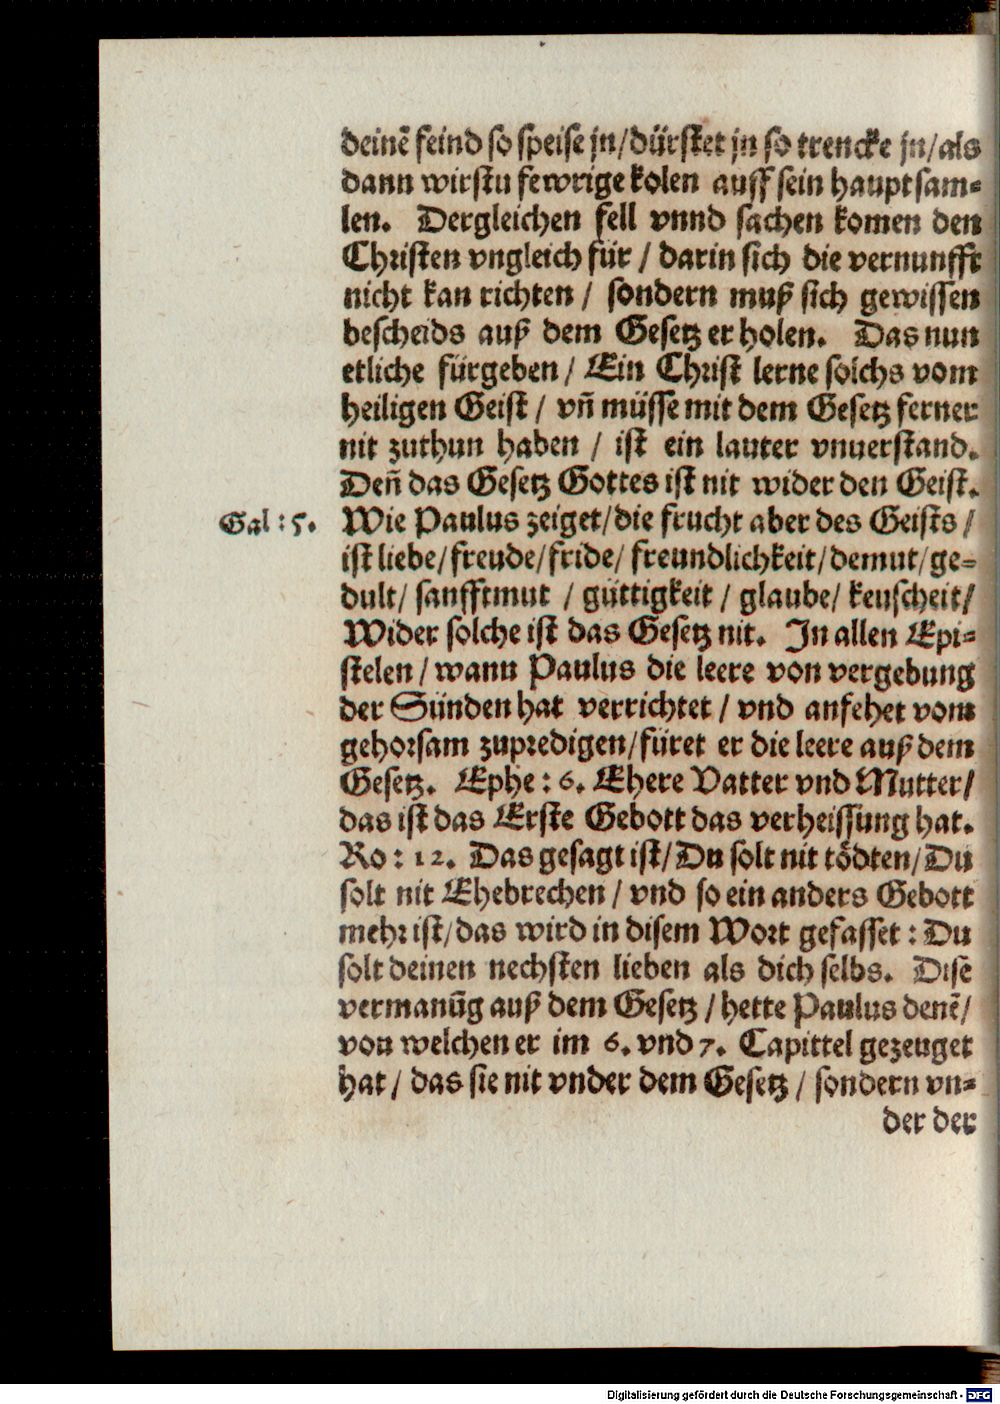 deinē feind so speise jn/dürstet jn so trencke jn/als
dann wirstu fewrige kolen auff sein haupt sam⸗
len. Dergleichen fell vnnd sachen komen den
Christen vngleich für / darin sich die vernunfft
nicht kan richten / sondern muß sich gewissen
bescheids auß dem Gesetz er holen. Das nun
etliche fürgeben / Ein Christ lerne solchs vom
heiligen Geist / vn̄ müsse mit dem Gesetz ferner
nit zuthun haben / ist ein lauter vnuerstand.
Den̄ das Gesetz Gottes ist nit wider den Geist.
Gal : 5. Wie Paulus zeiget/die frucht aber des Geists /
ist liebe/freude/fride/ freundlichkeit/demut/ge⸗
dult/ sanfftmut / güttigkeit / glaube/ keuscheit/
Wider solche ist das Gesetz nit. In allen Epi⸗
stelen / wann Paulus die leere von vergebung
der Sünden hat verrichtet / vnd anfehet vom
gehorsam zupredigen/füret er die leere auß dem
Gesetz. Ephe : 6. Ehere Vatter vnd Mutter/
das ist das Erste Gebott das verheissung hat.
Ro : 12. Das gesagt ist/Du solt nit tödten/Du
solt nit Ehebrechen / vnd so ein anders Gebott
mehr ist/das wird in disem Wort gefasset : Du
solt deinen nechsten lieben als dich selbs. Disē
vermanūg auß dem Gesetz / hette Paulus denē/
von welchen er im 6. vnd 7. Capittel gezeuget
hat / das sie nit vnder dem Gesetz / sondern vn⸗
der der
Digitalisierung gefördert durch die Deutsche Forschungsgemeinschaft - DFG